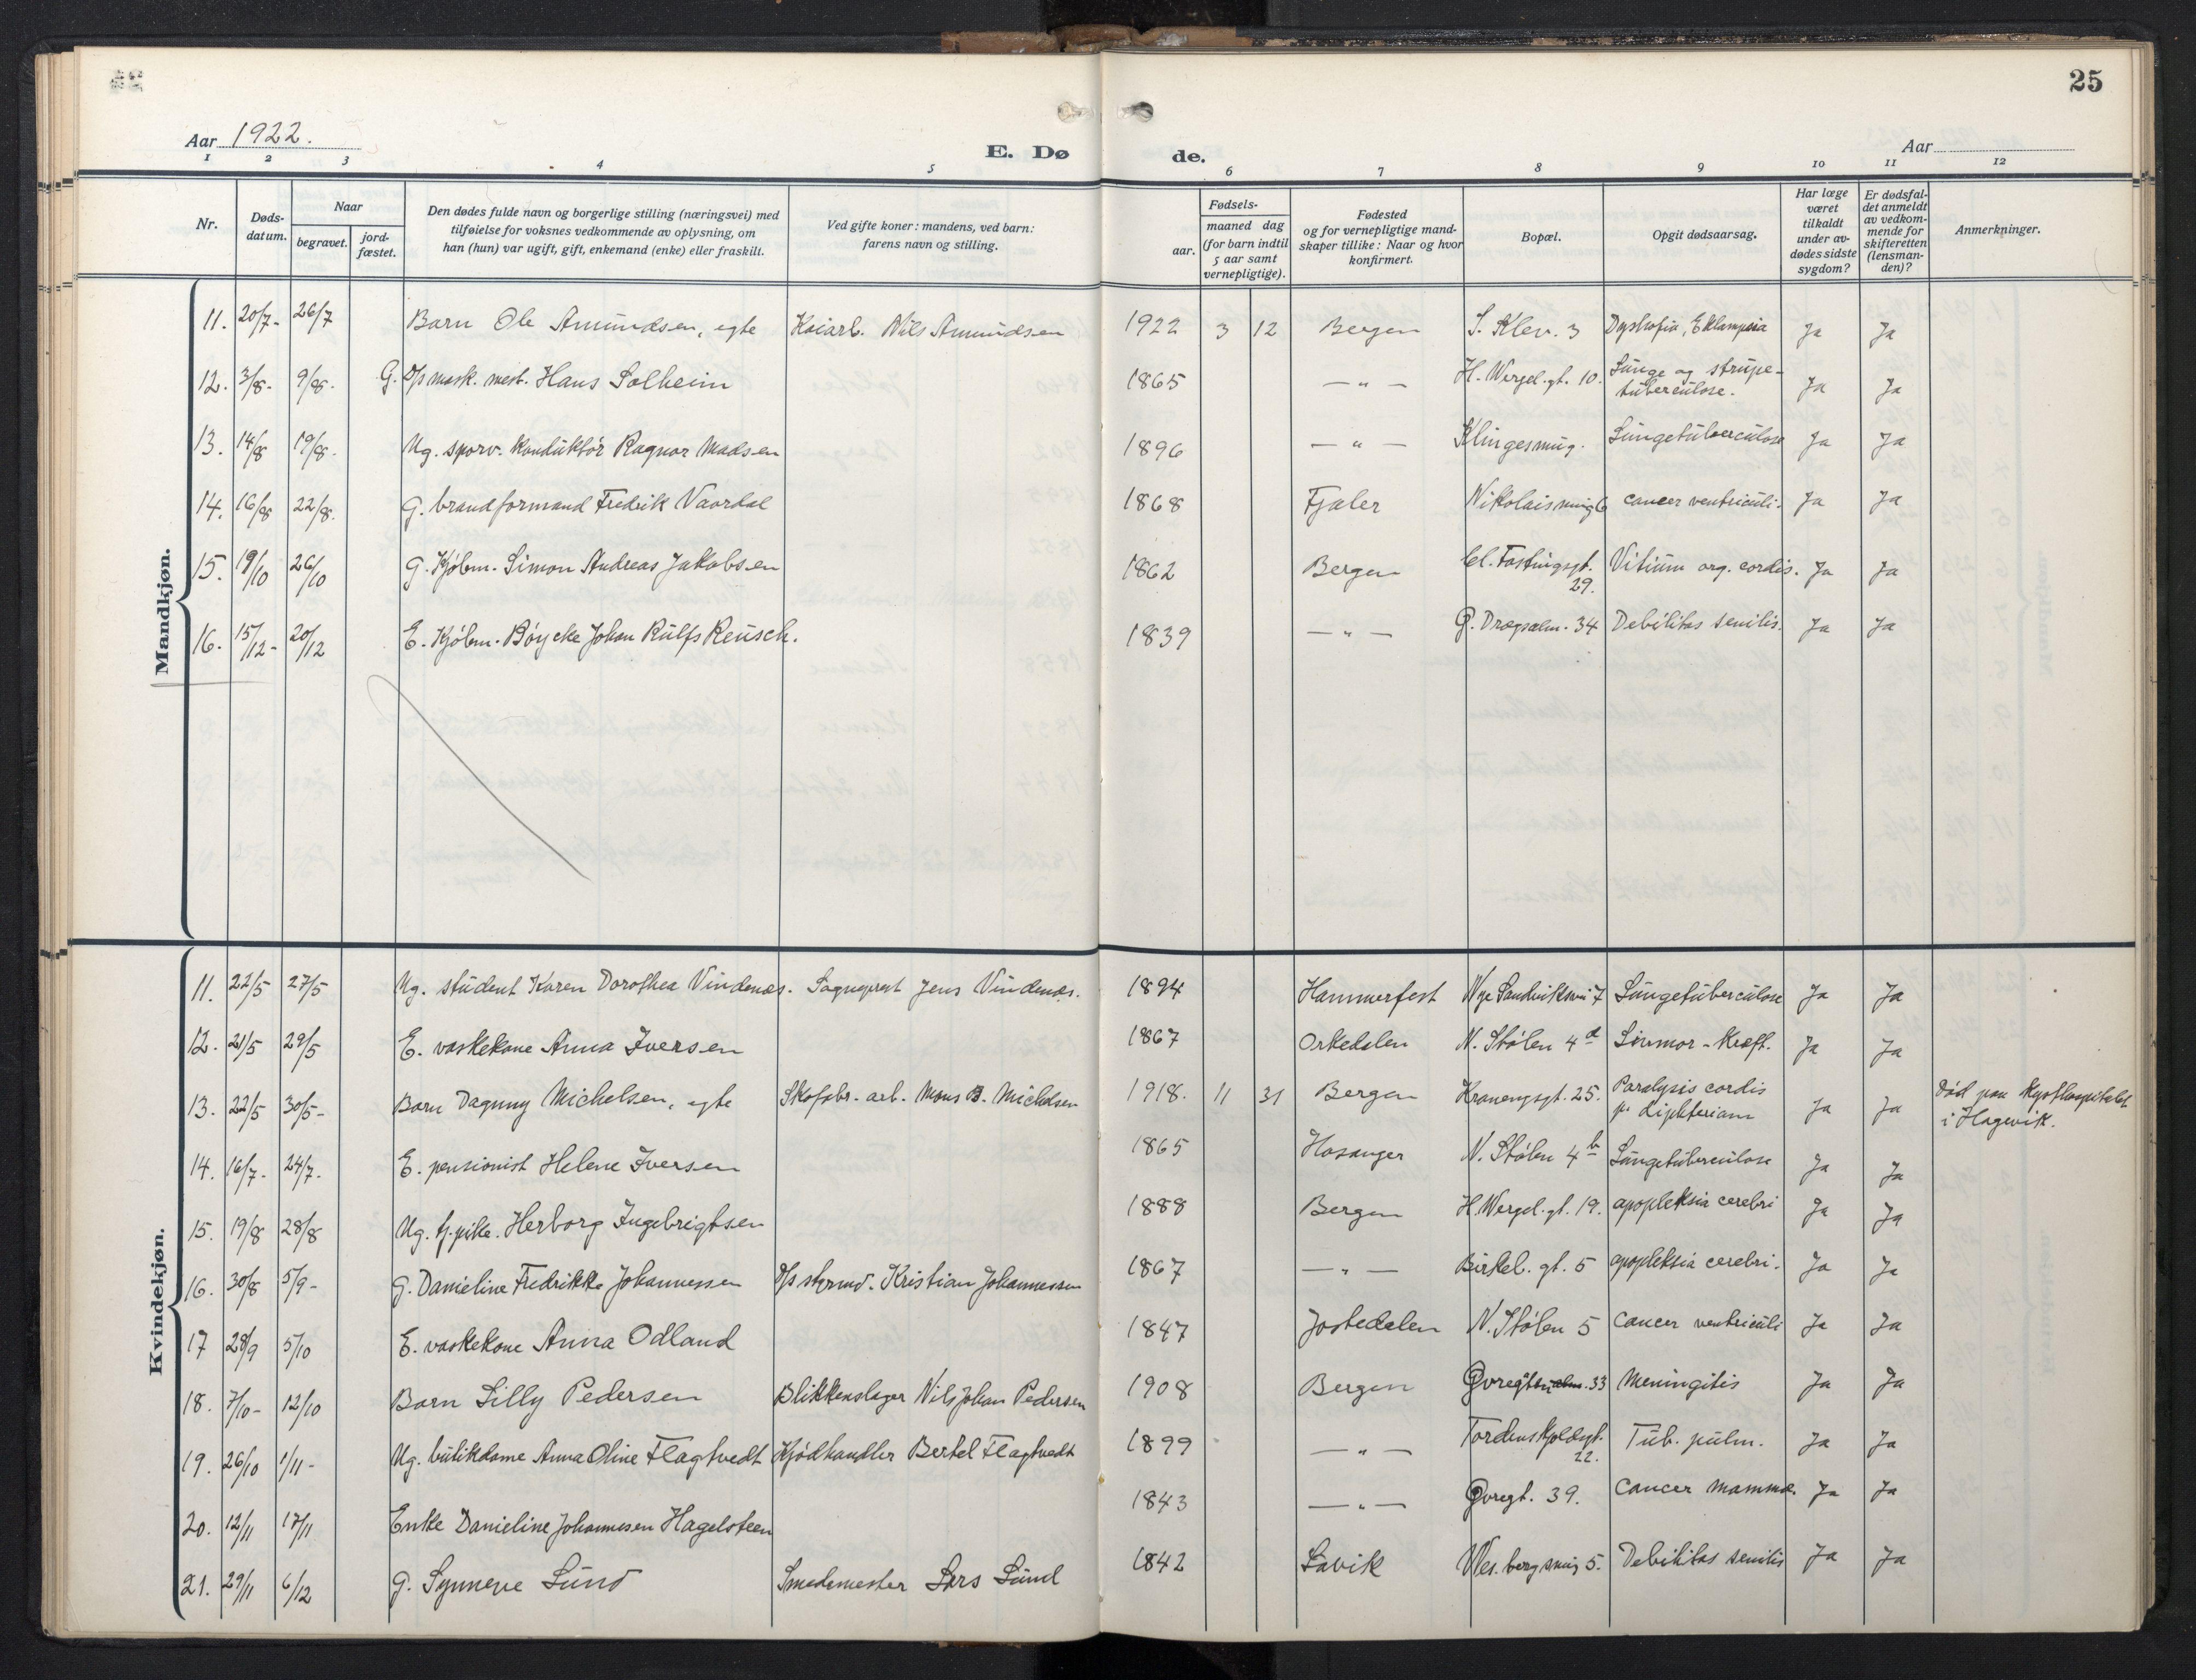 25
Aar 1922.
E. Dø de.
Aar
1 2 3 4 5 6 7 8 9 10 11 12
Nr.
Døds-
datum.
Naar
begravet.
jord-
fæstet.
Den dødes fulde navn og borgerlige stilling (næringsvei) med
tilføielse for voksnes vedkommende av oplysning, om
han (hun) var ugift, gift, enkemand (enke) eller fraskilt.
Ved gifte koner: mandens, ved barn:
farens navn og stilling.
Fødsels-
aar.
maaned dag
(for barn indtil
5 aar samt
vernepligtige).
Fødested
og for vernepligtige mand-
skaper tillike: Naar og hvor
konfirmert.
Bopæl.
Opgit dødsaarsag.
Har læge
været
tilkaldt
under av-
dødes sidste
sygdom?
Er dødsfal-
det anmeldt
av vedkom-
mende for
skifteretten
(lensman-
den)?
Anmerkninger.
Mandkjøn.
11. 20/7- 26/7 Barn Ole Amundsen, egte Kaiarb. Nils Amundsen 1922 3 12 Bergen S. Klev. 3 Dystrofia, Eklampsia Ja Ja
12. 3/8- 9/8- G. D/s mask. mest. Hans Solheim 1865 — " — H. Wergel. gt. 10. Lunge og strupe-
tuberculose. Ja Ja
13. 14/8 19/8- Ug. sporv. Konduktör Ragnar Madsen 1896 — " — Klingesmug. Lungetuberculose Ja Ja
14. 16/8 22/8. G. brandformand Fredrik Vaardal 1868 Fjaler Nikolaismug 6 cancer ventriculi. Ja Ja
15. 19/10 26/10 G. Kjøbm. Simon Andreas Jakobsen 1862 Bergen Cl. Fastingsgt.
29. Vitium org. cordis. Ja Ja
16. 15/12- 20/12 E. Kjøbm. Bøycke Johan Rulfs Reusch. 1839 — " — Ø. Drægsalm. 34 Debilitas senilis. Ja Ja
Kvindekjøn.
11. 22/5 27/5 Ug. student Karen Dorothea Vindenæs. Sogneprest Jens Vindenæs. 1894 Hammerfest Nye Sandviksvei 7 Lungetuberculose Ja Ja
12. 21/5 29/5 E. vaskekone Anna Iversen 1867 Orkedalen N. Stølen 4a Livmor-Kræft. Ja Ja
13. 22/5 30/5- Barn Dagny Michelsen, egte Skofabr. arb. Mons B. Michelsen 1918. 11 31 Bergen Kranengsgt. 25. Paralysis cordis
p. diphteriam Ja Ja Död paa Kysthospitalet
i Hagevik.
14. 16/7- 24/7- E. pensionist Helene Iversen 1865 Hosanger N. Stølen 4b Lungetuberculose Ja Ja
15. 19/8 28/8 Ug. tj. pike. Herborg Ingebrigtsen 1888 Bergen H. Wergel. gt. 19. apopleksia cerebri Ja Ja
16. 30/8 5/9- G. Danieline Fredrikke Johannessen D/s styrmd. Kristian Johannessen 1867 — " — Birkeb. gt. 5 apopleksia cerebri. Ja Ja
17 28/9 5/10 E. vaskekone Anna Odland 1847 Jostedalen N. Stølen 5 Cancer ventriculi Ja Ja
18. 7/10- 12/10 Barn Lilly Pedersen Blikkenslager Nils Johan Pedersen 1908 Bergen Øvregt. 33 Meningitis Ja Ja
19. 26/10 1/11- Ug. butikdame Anna Oline Flagtvedt Kjødhandler Bertel Flagtvedt 1899 — " — Tordenskjoldsgt.
22. Tub. pulm. Ja Ja
20. 12/11 17/11 Enke Danieline Johannesen Hagelsteen 1843 — " — Øvregt. 39. Cancer mammæ. Ja Ja
21. 29/11 6/12 G. Synneve Lund Smedemester Lars Lund 1842 Lavik Wes. bergsmug 5. Debilitas senilis Ja Ja